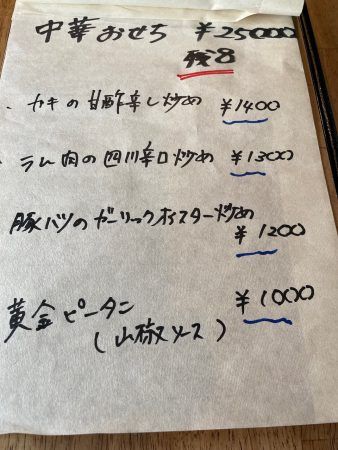 中華おせち ¥25000
残8
・カキの甘酢辛し炒め ¥1400
・ラム肉の四川辛口炒め ¥1300
豚ハツのガーリックオイスター炒め
¥1200
黄金ピータン ¥1000
(山椒ソース)